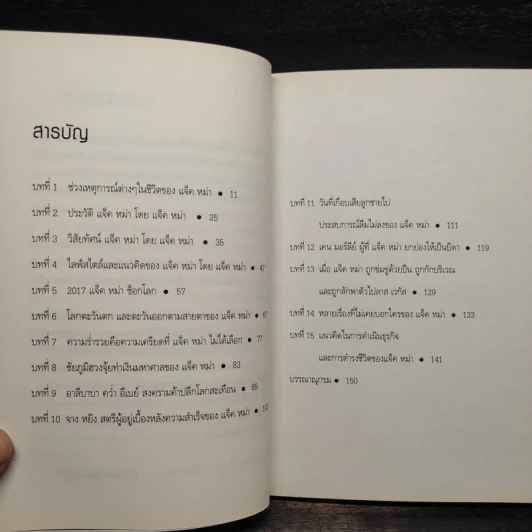 สารบัญ
บทที่ 1 ช่วงเหตุการณ์ต่างๆในชีวิตของ แจ็ค หม่า ● 11
บทที่ 2 ประวัติ แจ็ค หม่า โดย แจ็ค หม่า ● 25
บทที่ 3 วิสัยทัศน์ แจ็ค หม่า โดย แจ็ค หม่า ● 35
บทที่ 4 ไลฟ์สไตล์และแนวคิดของ แจ็ค หม่า โดย แจ็ค หม่า ● 47
บทที่ 5 2017 แจ็ค หม่า ช็อกโลก ● 57
บทที่ 6 โลกตะวันตก และตะวันออกตามสายตาของ แจ็ค หม่า ● 67
บทที่ 7 ความร่ำรวยคือความเครียดที่ แจ็ค หม่า ไม่ได้เลือก ● 77
บทที่ 8 ชัยภูมิฮวงจุ้ยทำเงินมหาศาลของ แจ็ค หม่า ● 83
บทที่ 9 อาลีบาบา คว่ำ อีเบย์ สงครามค้าปลีกโลกสะเทือน ● 89
บทที่ 10 จาง หยิง สตรีผู้อยู่เบื้องหลังความสำเร็จของ แจ็ค หม่า ●
บทที่ 11 วันที่เกือบเสียลูกชายไป
ประสบการณ์ลืมไม่ลงของ แจ็ค หม่า ● 111
บทที่ 12 เคน มอร์ลีย์ ผู้ที่ แจ็ค หม่า ยกย่องให้เป็นบิดา ● 119
บทที่ 13 เมื่อ แจ็ค หม่า ถูกข่มขู่ด้วยปืน ถูกกักบริเวณ
และถูกลักพาตัวไปลาส เวกัส ● 129
บทที่ 14 หลายเรื่องที่ไม่เคยบอกใครของ แจ็ค หม่า ● 133
บทที่ 15 แนวคิดในการดำเนินธุรกิจ
และการดำรงชีวิตของแจ็ค หม่า ● 141
บรรณานุกรม ● 150